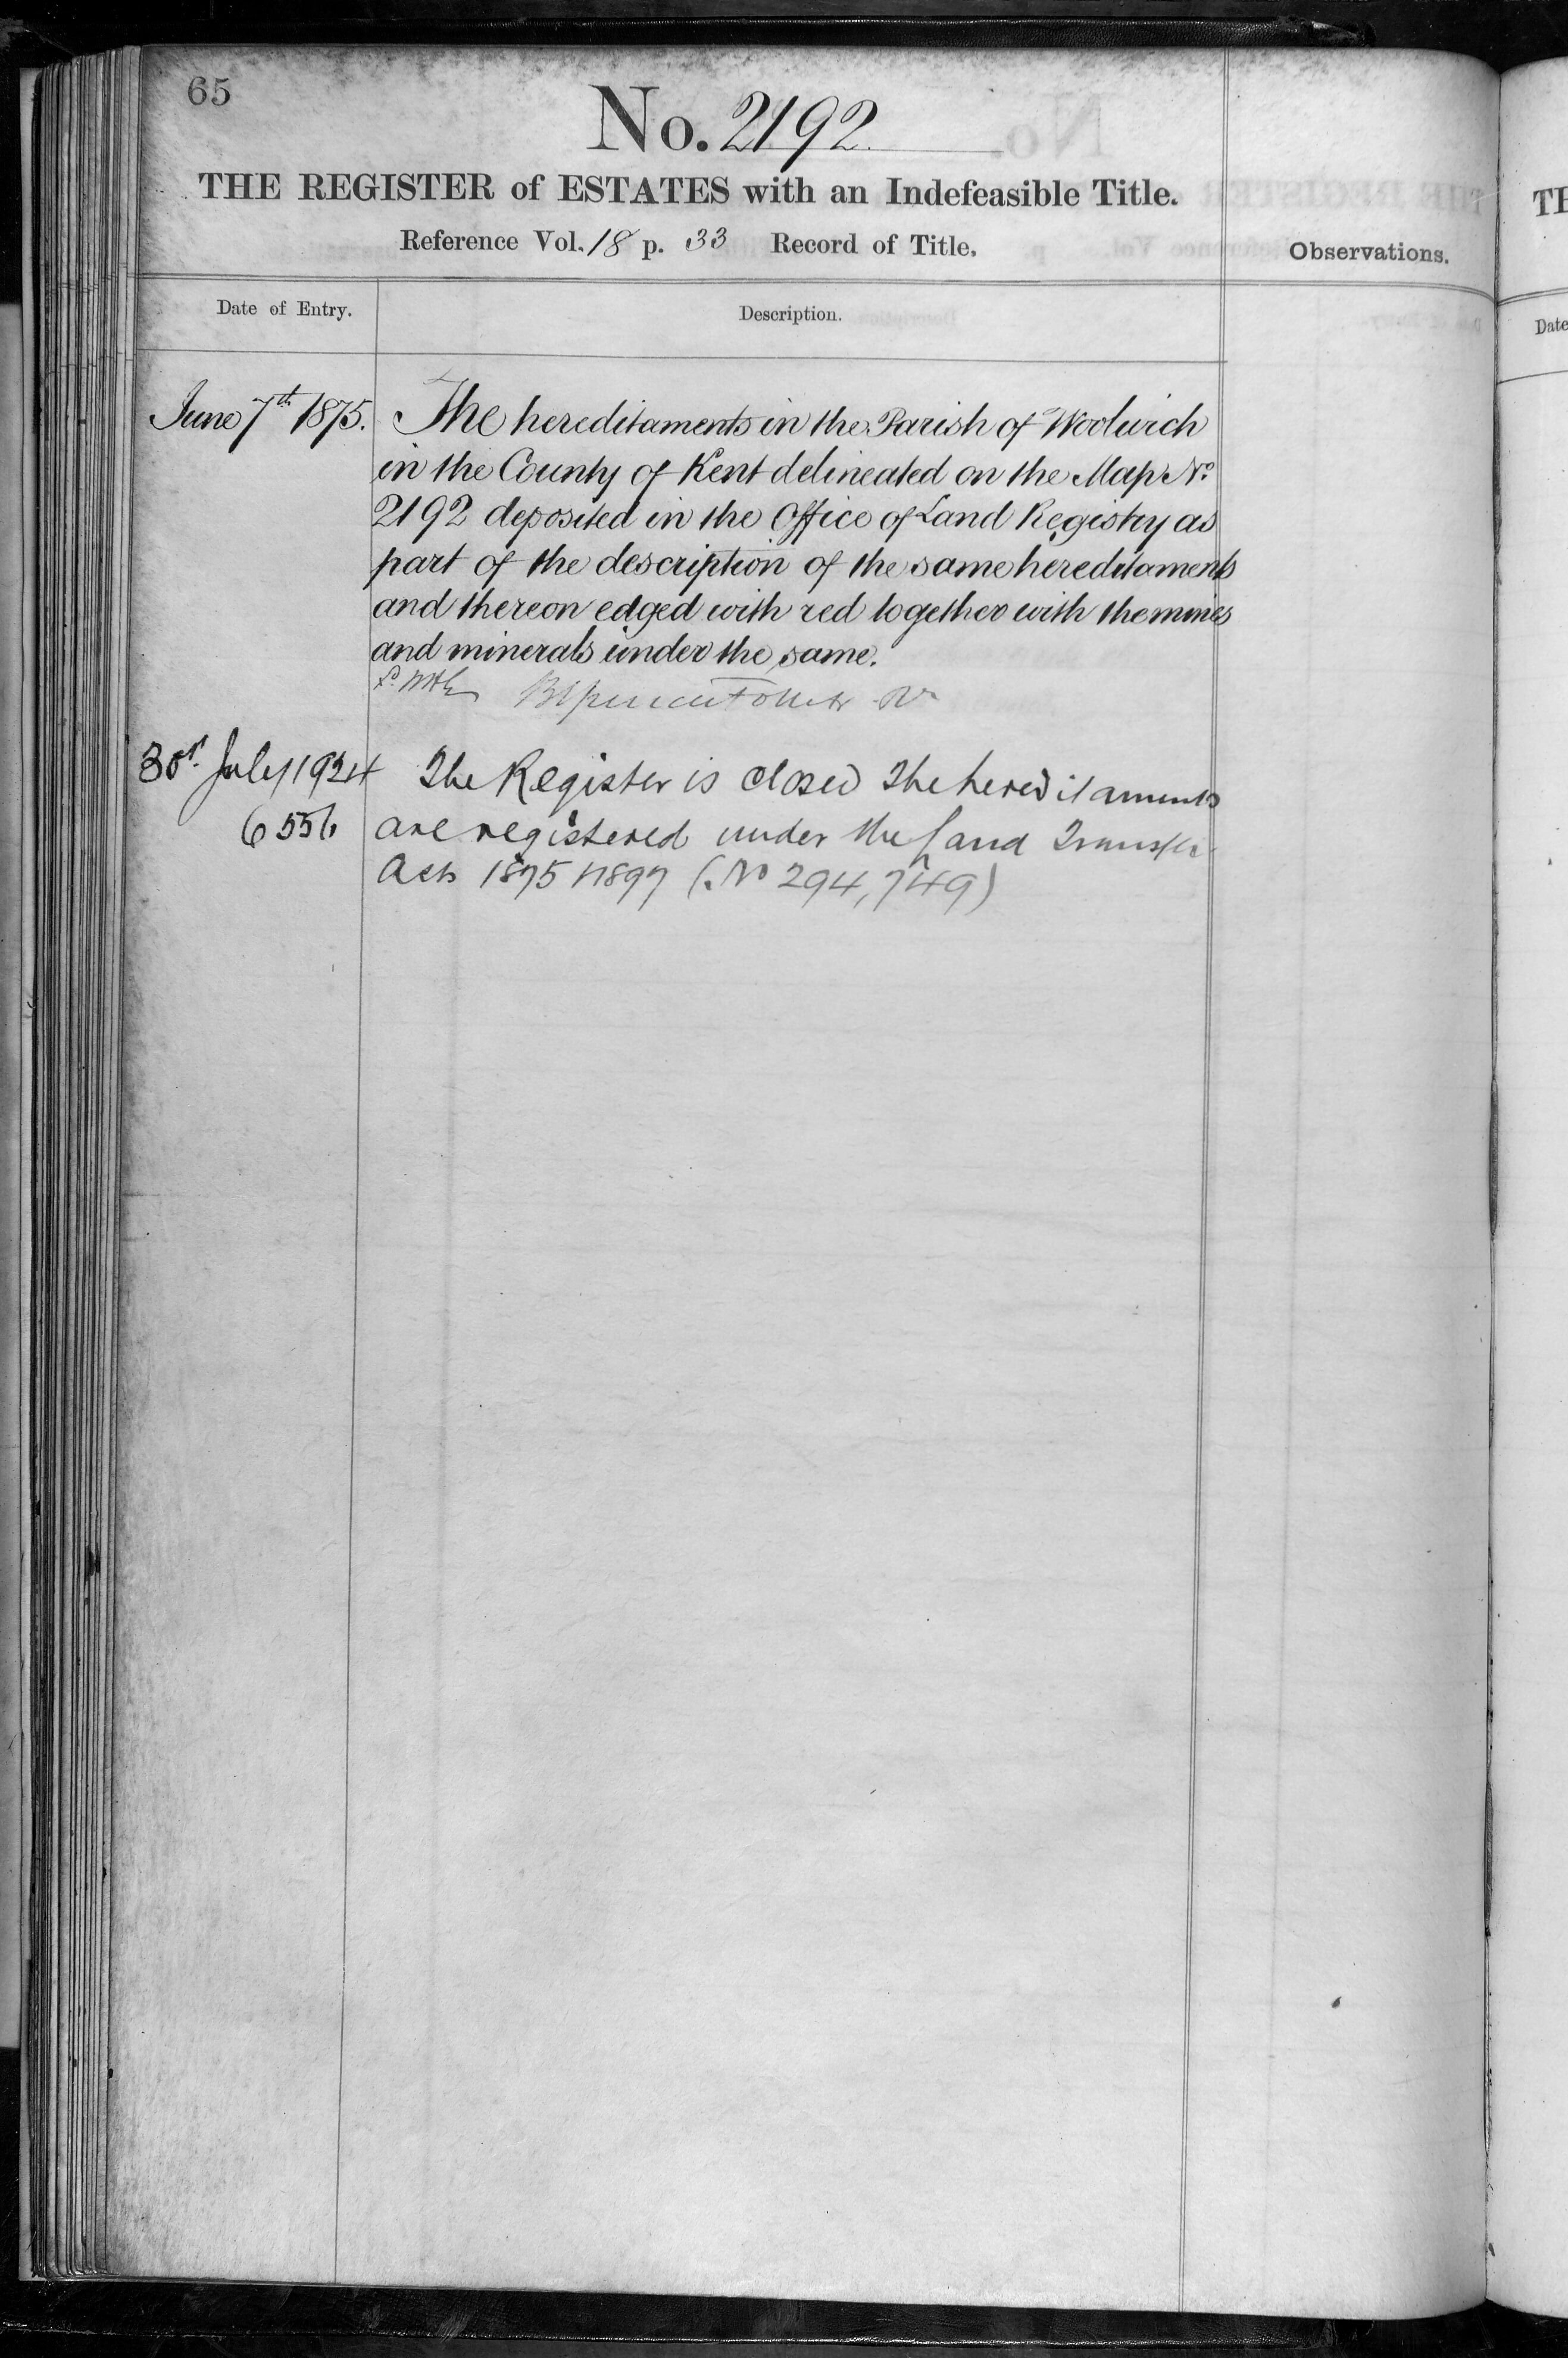 65
No. 2192
THE REGISTER of ESTATES with an Indefeasible Title.
Reference Vol. 18 p. 33 Record of Title.
Observations.
Date of Entry.
Description.
June 7th 1875.
The hereditaments in the Parish of Woolwich
in the County of Kent delineated on the Map No
2192 deposited in the Office of Land Registry as
part of the description of the same hereditaments
and thereon edged with red together with the mines
and minerals under the same.
July 1924
The Register is closed The hereditaments
are registered under the Land Transfer
Acts 1875 & 1897 (No 294,749)
TH
Date